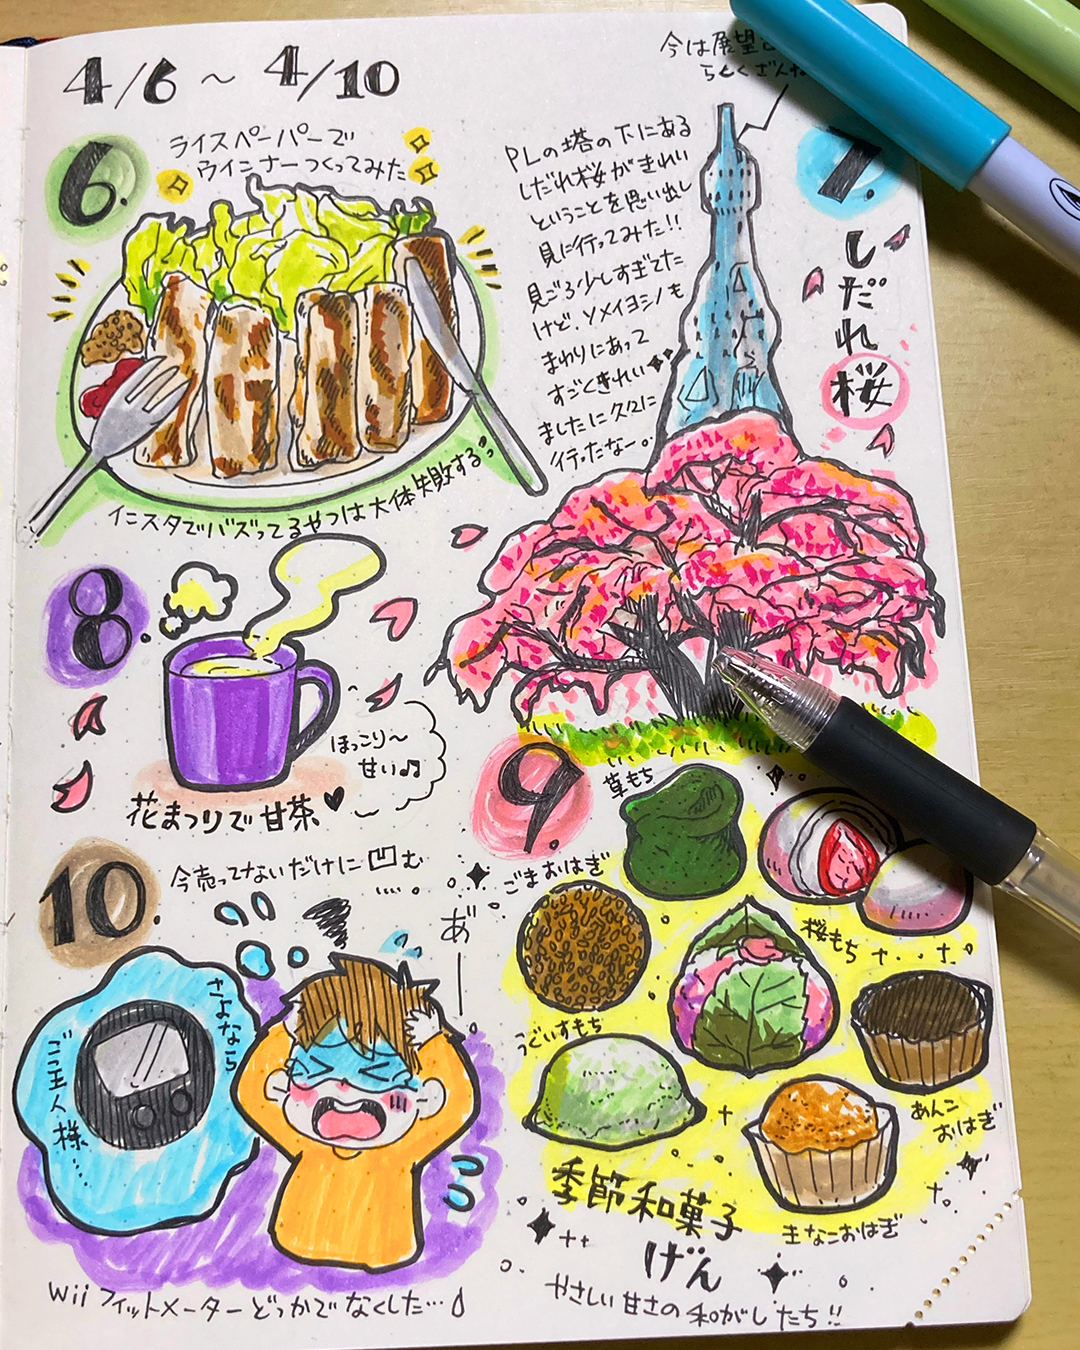 4/6 ～ 4/10
6.
ライスペーパーで
ウインナーつくってみた
インスタでバズってるやつは大体失敗する
今は展望
らしくざんね
7.
しだれ
桜
PLの塔の下にある
しだれ桜がきれい
ということを思い出し
見に行ってみた!!
見ごろ少しすぎてた
けど、ソメイヨシノも
まわりにあって
すごくきれい
ましたに久々に
行ったなー。
8.
ほっこり～
甘い♫
花まつりで甘茶♥
9.
草もち
ごまおはぎ
桜もち
うぐいすもち
あんこ
おはぎ
きなこおはぎ
季節和菓子
げん
やさしい甘さの和がしたち!!
10.
今売ってないだけに凹む
....
あ゛ー
さよなら
ご主人様…
Wiiフィットメーターどっかでなくした…